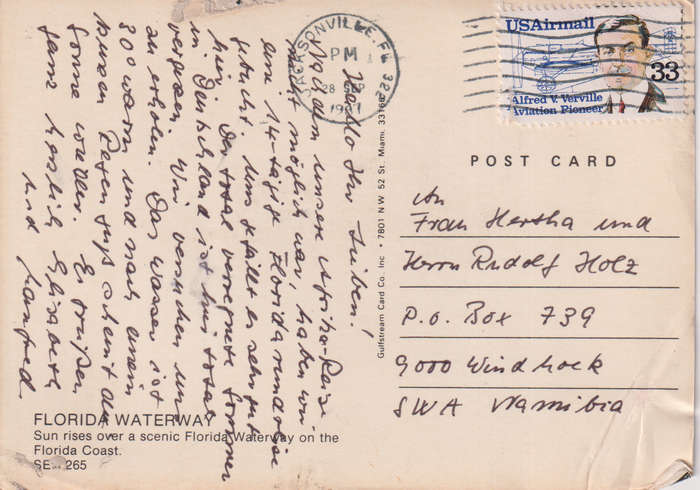 Hallo Ihr Lieben!
Nachdem unsere Afrika-Reise
nicht möglich war, haben wir
eine 14-tägige Floridarundreise
gebucht. Uns gefällt es sehr gut
hier. Der total verregnete Sommer
in Deutschland ist hier total
vergessen. Wir versuchen uns
zu erholen. Das Wasser ist
30° warm und nach einem
kurzen Regenguß scheint die
Sonne wieder. Es grüßen
ganz herzlich Elisabeth
und Manfred.
JACKSONVILLE, FL 322
PM
28 SEP
1987
USAirmail
33
Alfred V. Verville
Aviation Pioneer
POST CARD
An
Frau Hertha und
Herrn Rudolf Holz
P.O. Box 739
9000 Windhoek
SWA Namibia
Gulfstream Card Co. Inc • 7801 N W 52 St. Miami. 33166
FLORIDA WATERWAY
Sun rises over a scenic Florida Waterway on the
Florida Coast.
265